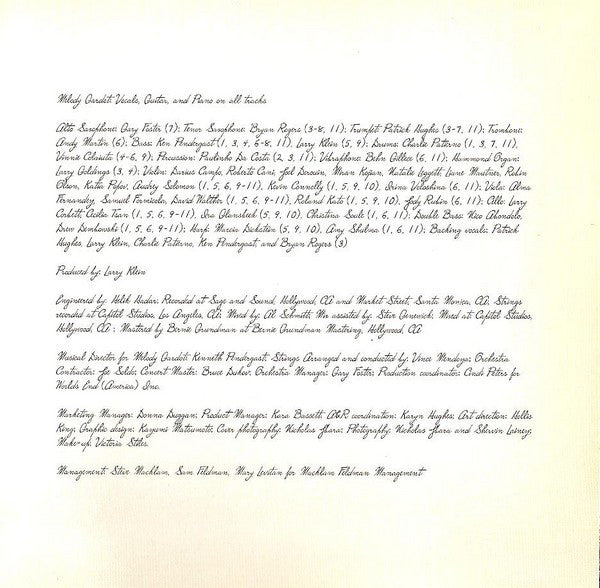 Melody Gardot: Vocals, Guitar, and Piano on all tracks
Alto Saxophone: Gary Foster (7); Tenor Saxophone: Bryan Rogers (3-8, 11); Trumpet: Patrick Hughes (3-7, 11); Trombone:
Andy Martin (6); Bass: Ken Pendergast (1, 3, 4, 6-8, 11), Larry Klein (5, 9); Drums: Charlie Paterno (1, 3, 7, 11),
Vinnie Colaiuta (4-6, 9); Percussion: Paulinho Da Costa (2, 3, 11); Vibraphone: Behn Gillece (6, 11); Hammond Organ:
Larry Goldings (3, 4); Violin: Darius Campo, Roberto Cani, Joel Derouin, Mnan Kojian, Natalie Leggett, Liane Mautner, Robin
Olson, Katia Popov, Audrey Solomon (1, 5, 6, 9-11), Kevin Connelly (1, 5, 9, 10), Irina Voloshina (6, 11); Viola: Alma
Fernandez, Samuel Formicola, David Walther (1, 5, 6, 9-11), Roland Kato (1, 5, 9, 10), Jody Rubin (6, 11); Cello: Larry
Corbett, Cecilia Tsan (1, 5, 6, 9-11), Ira Glansbeek (5, 9, 10), Christina Soule (1, 6, 11); Double Bass: Nico Abondolo,
Drew Dembowski (1, 5, 6, 9-11); Harp: Marcia Dickstein (5, 9, 10), Amy Shulman (1, 6, 11); Backing vocals: Patrick
Hughes, Larry Klein, Charlie Paterno, Ken Pendergast, and Bryan Rogers (3)
Produced by: Larry Klein
Engineered by: Helik Hadar; Recorded at Sage and Sound, Hollywood, CA and Market Street, Santa Monica, CA; Strings
recorded at Capitol Studios, Los Angeles, CA; Mixed by: Al Schmitt; Mix assisted by: Steve Genewick; Mixed at Capitol Studios,
Hollywood, CA; Mastered by Bernie Grundman at Bernie Grundman Mastering, Hollywood, CA
Musical Director for Melody Gardot: Kenneth Pendergast; Strings Arranged and conducted by: Vince Mendoza; Orchestra
Contractor: Joe Soldo; Concert Master: Bruce Dukov; Orchestra Manager: Gary Foster; Production coordinator: Cindi Peters for
Worlds End (America) Inc.
Marketing Manager: Donna Duggan; Product Manager: Kara Bassett; A&R coordination: Karyn Hughes; Art direction: Hollis
King; Graphic design: Kazumi Matsumoto; Cover photography: Nicholas Asara; Photography: Nicholas Asara and Shervin Lainez;
Make-up: Victoria Stiles.
Management: Steve Macklam, Sam Feldman, Mary Levitan for Macklam Feldman Management